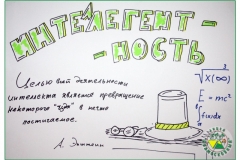 ИНТЕЛЕГЕНТ-
-НОСТЬ
Целью всей деятельности
интеллекта является превращение
некоторого "чуда" в нечто
постигаемое.
А. Эйнштейн
√X(∞)
E=mc²
∫f(x)dx